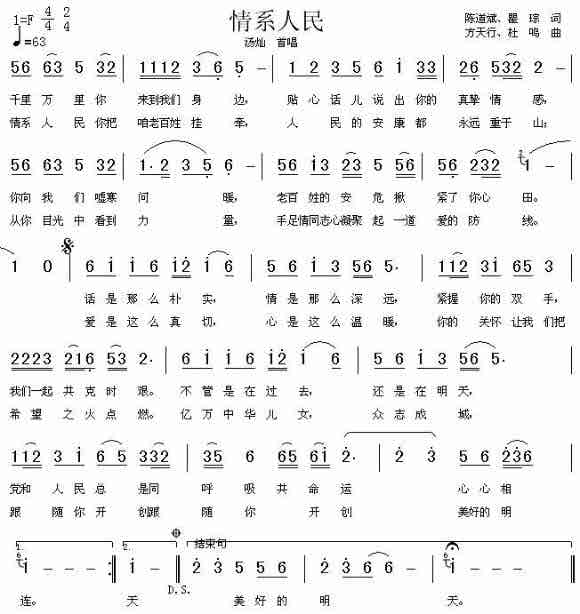 情系人民
1=F 4/4 2/4
♩=63
汤灿 首唱
陈道斌、瞿琮 词
方天行、杜鸣 曲
56 63 5 32 | 1112 3 6 5 - | 1 2 3 5 6 i 33 | 26 532 2 - |
千里 万里 你 来到我们 身 边, 贴 心 话 儿 说 出 你的 真挚 情 感,
情系 人 民 你把 咱老百姓 挂 牵, 人 民 的 安 康 都 永远 重于 山;
56 63 5 32 | 1· 2 3 5 6 - | 56 i3 23 5 56 | 56 232 1 - |
你向 我 们 嘘寒 问 暖, 老百 姓的 安 危揪 紧了 你心 田。
从你 目光 中 看到 力 量, 手足情同志心凝聚 起 一道 爱的 防 线。
1 0 | 6 i i 6 i2 i 6 | 5 6 i 3 56 5· | 112 3i 65 3 |
话 是 那 么 朴 实, 情 是 那 么 深 远, 紧握 你的 双 手,
爱 是 这 么 真 切, 心 是 这 么 温 暖, 你的 关怀 让我 们把
2223 216 53 2· | 6 i i 6 i2 i 6 | 5 6 2 3 56 5· |
我们一起 共克 时 艰。 不 管 是 在 过 去, 还 是 在 明 天,
希 望 之 火 点 燃。 亿 万 中 华 儿 女, 众 志 成 城,
112 3 i 6 5 332 | 35 6 561 6i 2· | 2 3 5 6 236 |
党和 人 民 总 是同 呼 吸 共 命 运 心 心 相
跟 随 你 开 创跟 随 你 开 创 美好的 明
1. i - - - :| 2. i - - | 结束句 2 3 5 56 | 2 3 6 6 - | i - - - |
连。 天 D.S. 美 好 的 明 天。